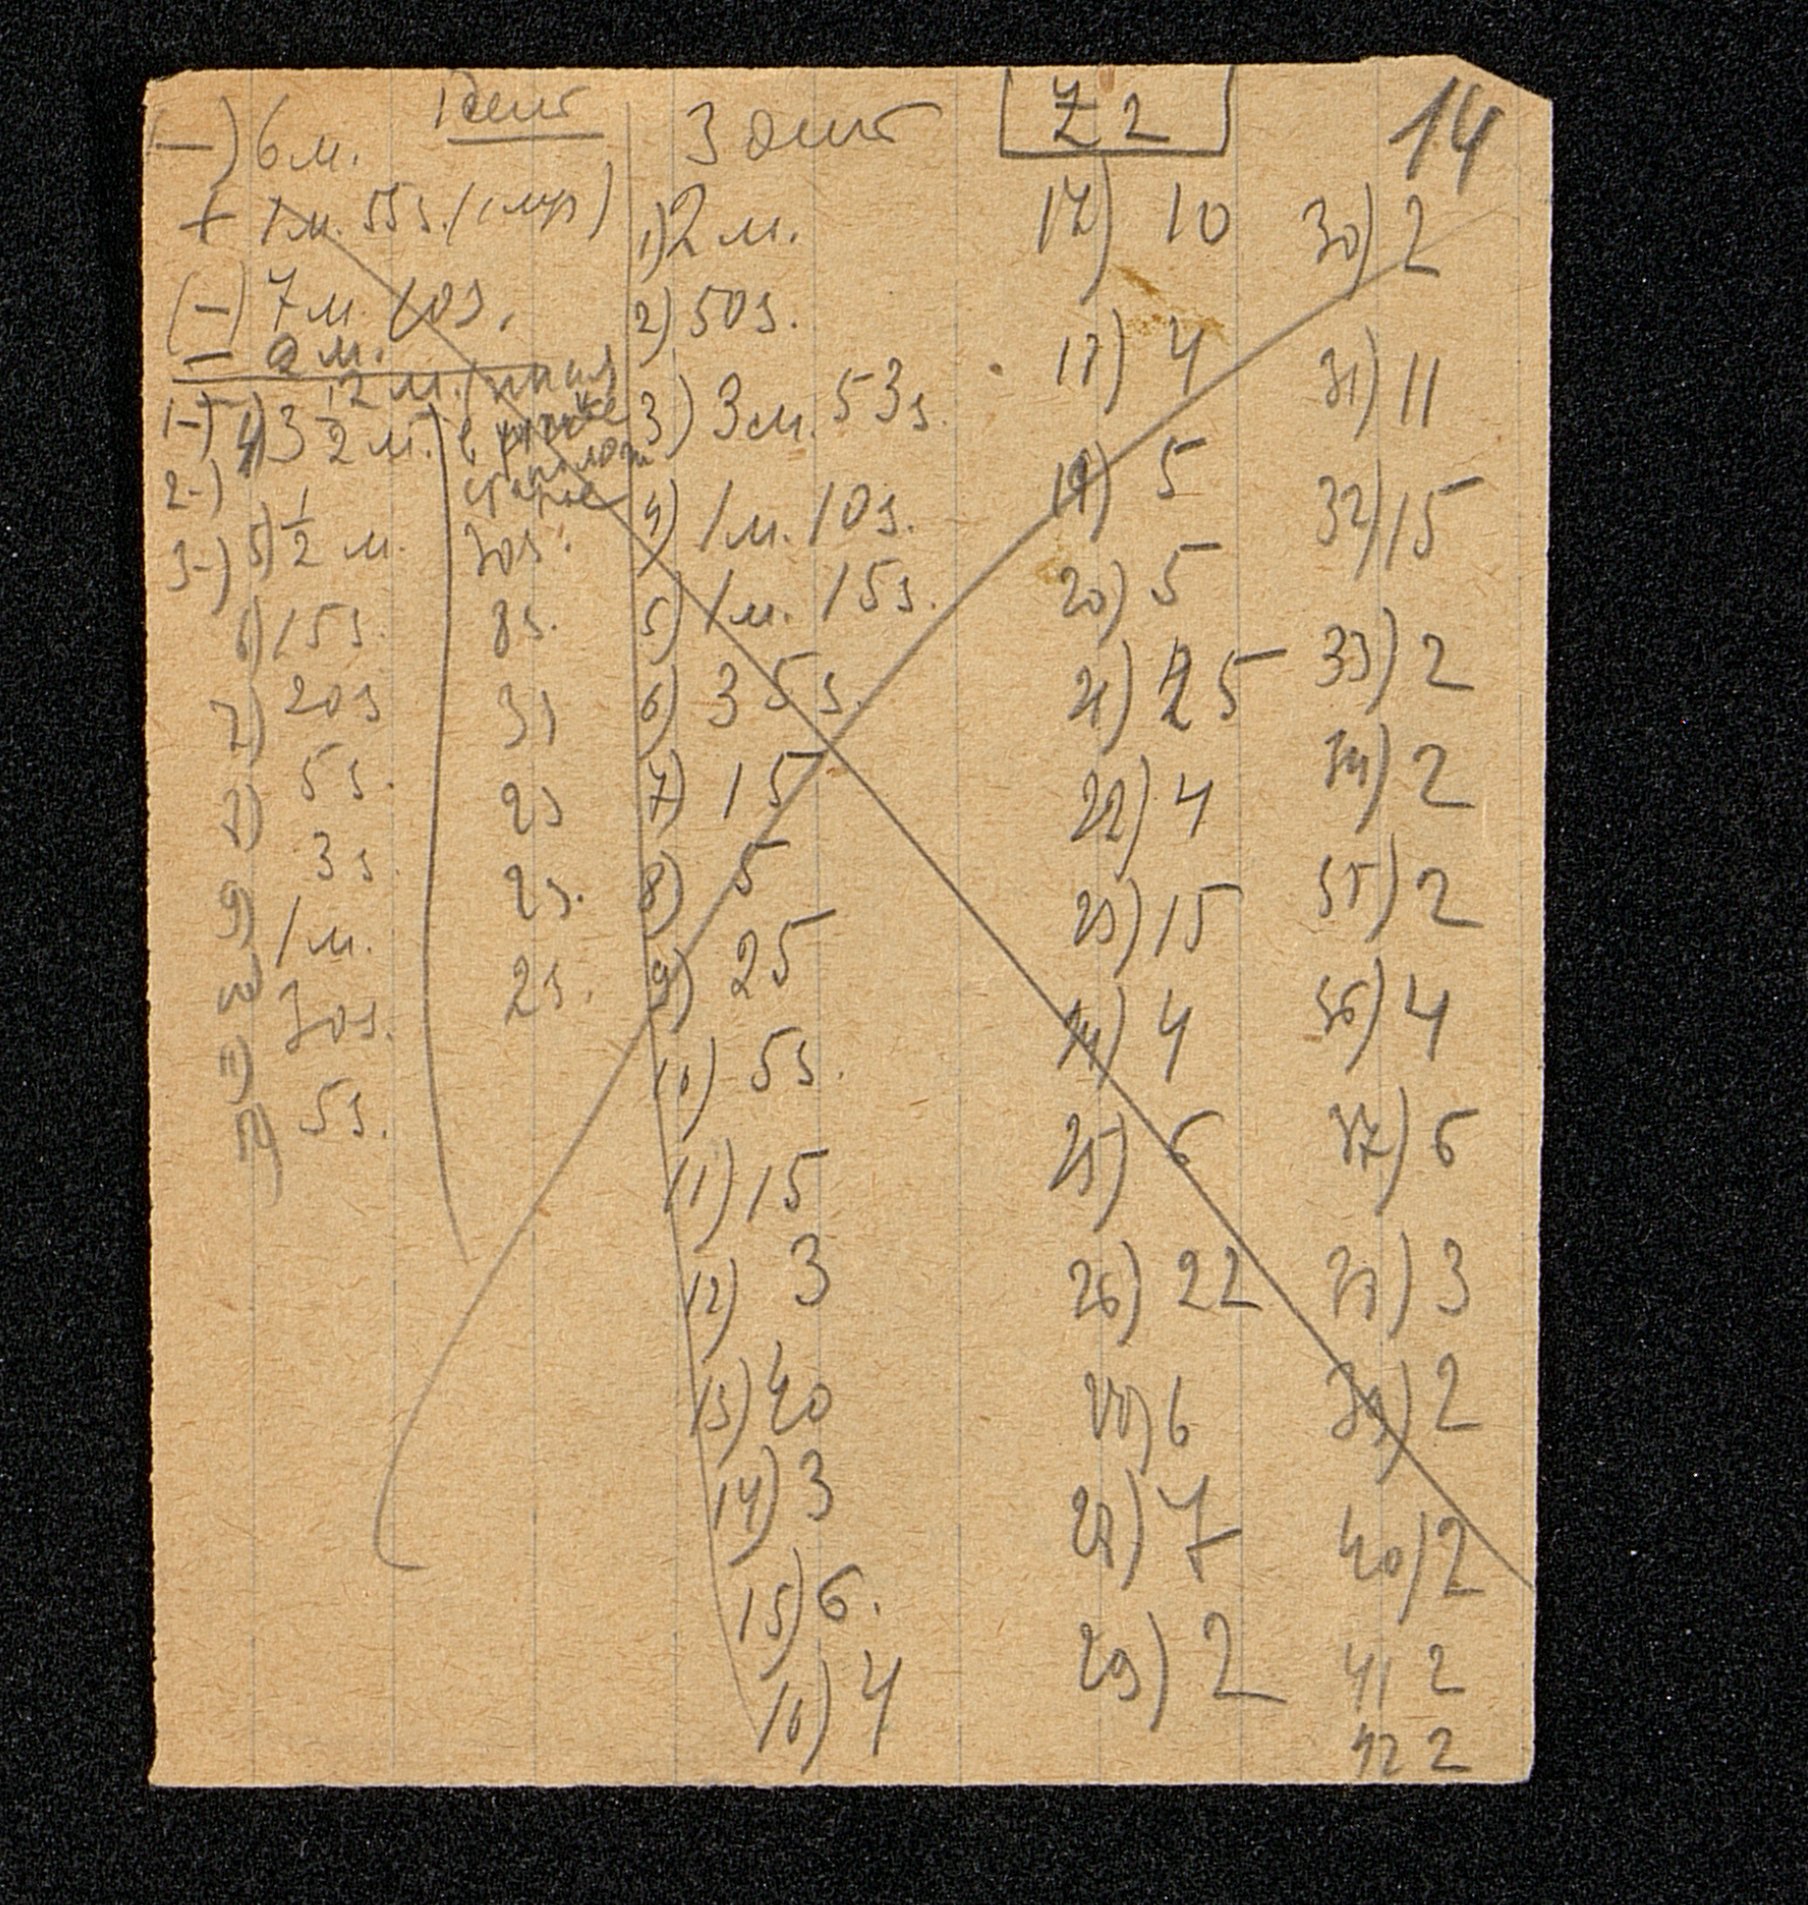 14
Z 2
1 опыт
(–) 6 м.
+ 1 м. 55 s.
(–) 7 м. 10 s.
– 2 м.
12 м.
1-) 4) 3 1/2 м.
2-)
3-) 5) 1/2 м. 30 s.
6) 15 s. 8 s.
7) 20 s 3 s
8) 5 s. 2 s
9) 3 s. 2 s.
10) 1 м. 2 s.
11) 30 s.
12) 5 s.
3 опыт
1) 2 м.
2) 50 s.
3) 3 м. 53 s.
4) 1 м. 10 s.
5) 1 м. 15 s.
6) 35 s.
7) 15
8) 5
9) 25
10) 5 s.
11) 15
12) 3
13) 40
14) 3
15) 6.
16) 4
17) 10
18) 4
19) 5
20) 5
21) 25
22) 4
23) 15
24) 4
25) 6
26) 22
27) 6
28) 7
29) 2
30) 2
31) 11
32) 15
33) 2
34) 2
35) 2
36) 4
37) 6
38) 3
39) 2
40) 2
41 2
42 2